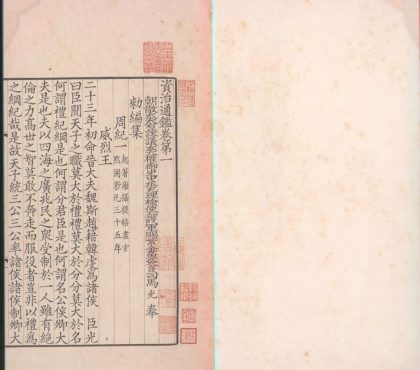 資治通鑑卷第一
朝散大夫右諫議大夫權御史中丞充理檢使上護軍賜紫金魚袋臣司馬 光 奉
勑編集
周紀一 起著雍攝提格盡玄
黓困敦凡三十五年
威烈王
二十三年初命晉大夫魏斯趙籍韓虔為諸侯 臣光
曰臣聞天子之職莫大於禮禮莫大於分分莫大於名
何謂禮紀綱是也何謂分君臣是也何謂名公侯卿大
夫是也夫以四海之廣兆民之衆受制於一人雖有絕
倫之力高世之智莫敢不奔走而服役者豈非以禮為
之綱紀哉是故天子統三公三公率諸侯諸侯制卿大